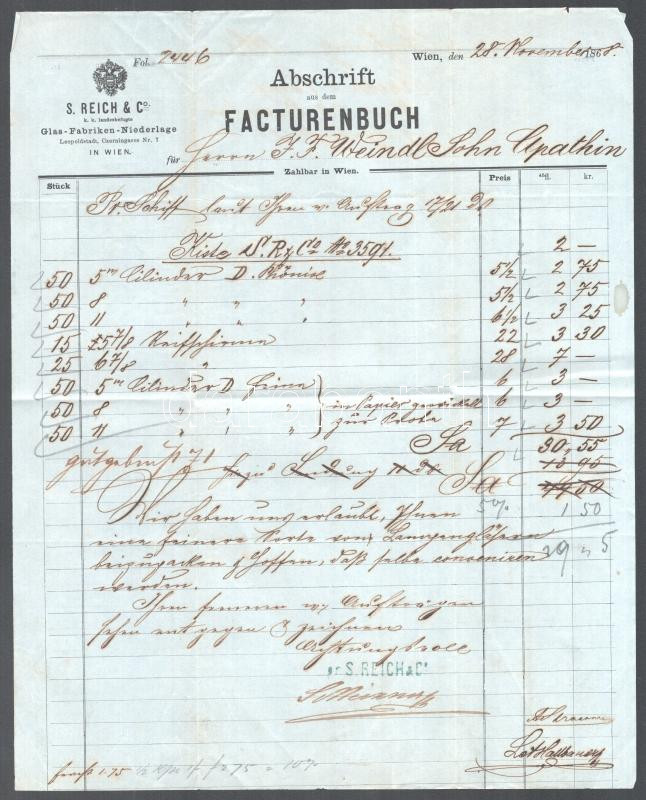 Fol. 2446
Wien, den 28. November 1868.
S. REICH & Co.
k. k. landesbefugte
Glas-Fabriken-Niederlage
Leopoldstadt, Czerningasse Nr. 7
IN WIEN.
Abschrift
aus dem
FACTURENBUCH
für Herrn J. F. Weindl Sohn Apathin
Zahlbar in Wien.
Stück Preis fl. kr.
Pr. Schiff laut Ihren w. Auftrag
Kiste S. R. & Co No 3591. 2 —
50 5''' Cilinder D. 5 1/2 2 75
50 8 " " " 5 1/2 2 75
50 11 " " " 6 1/2 3 25
15 5 7/8 Reifschirme 22 3 30
25 6 7/8 " 28 7 —
50 5''' Cilinder D feine 6 3 —
50 8 " " " in Papier gewickelt 6 3 —
50 11 " " " zur Probe 7 3 50
Sa 30,55
Sa
5% 1 50
29 " 5
Wir haben uns erlaubt, Ihnen
eine feinere Sorte von Lampengläsern
beizupacken & hoffen, daß selbe conveniren
werden.
Ihren ferneren w. Aufträgen
sehen entgegen & zeichnen
Achtungsvoll
pr S. REICH & Co